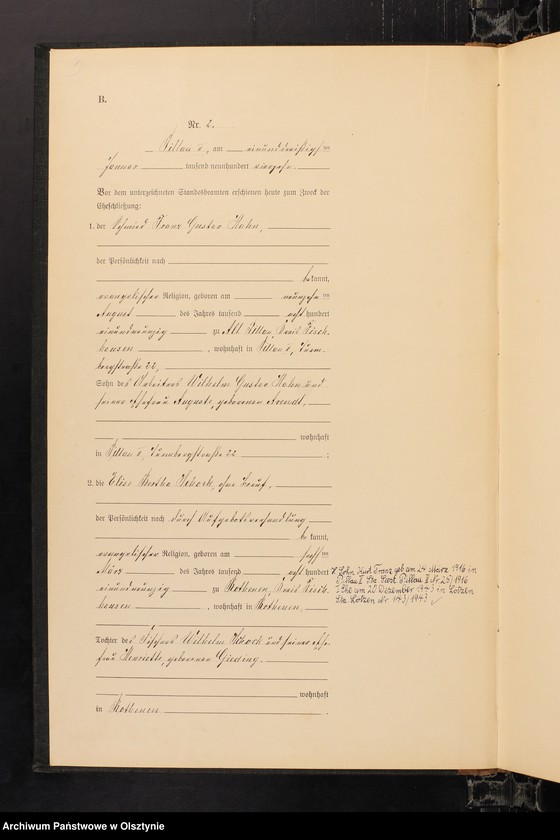 B.
Nr. 2.
Pillau II, am einunddreißigsten
Januar tausend neunhundert vierzehn.
Vor dem unterzeichneten Standesbeamten erschienen heute zum Zweck der
Eheschließung:
1. der Schmied Franz Gustav Hahn,
der Persönlichkeit nach
bekannt,
evangelischer Religion, geboren am neunzehnten
August des Jahres tausend acht hundert
einundneunzig zu Alt Pillau, Kreis Fisch-
hausen, wohnhaft in Pillau II, Turm-
bergstraße 22,
Sohn des Arbeiters Wilhelm Gustav Hahn und
seiner Ehefrau Auguste, geborenen Arendt,
wohnhaft
in Pillau II, Turmbergstraße 22;
2. die Elise Bertha Schock, ohne Beruf,
der Persönlichkeit nach durch Aufgebotsverhandlung
bekannt,
evangelischer Religion, geboren am
März des Jahres tausend acht hundert
einundneunzig zu Rothenen, Kreis Fisch-
hausen, wohnhaft in Rothenen,
Tochter des Fischers Wilhelm Schock und seiner Ehe-
frau Henriette, geborenen Gieding.
wohnhaft
in Rothenen.
Sohn Kurt Franz geb. am 24. März 1916 in
Pillau II Sta. Pillau II Nr. 25/1916
I Ehe am 20. Dezember 1943 in Lötzen
Sta. Lötzen Nr. 143/1943
Archiwum Państwowe w Olsztynie